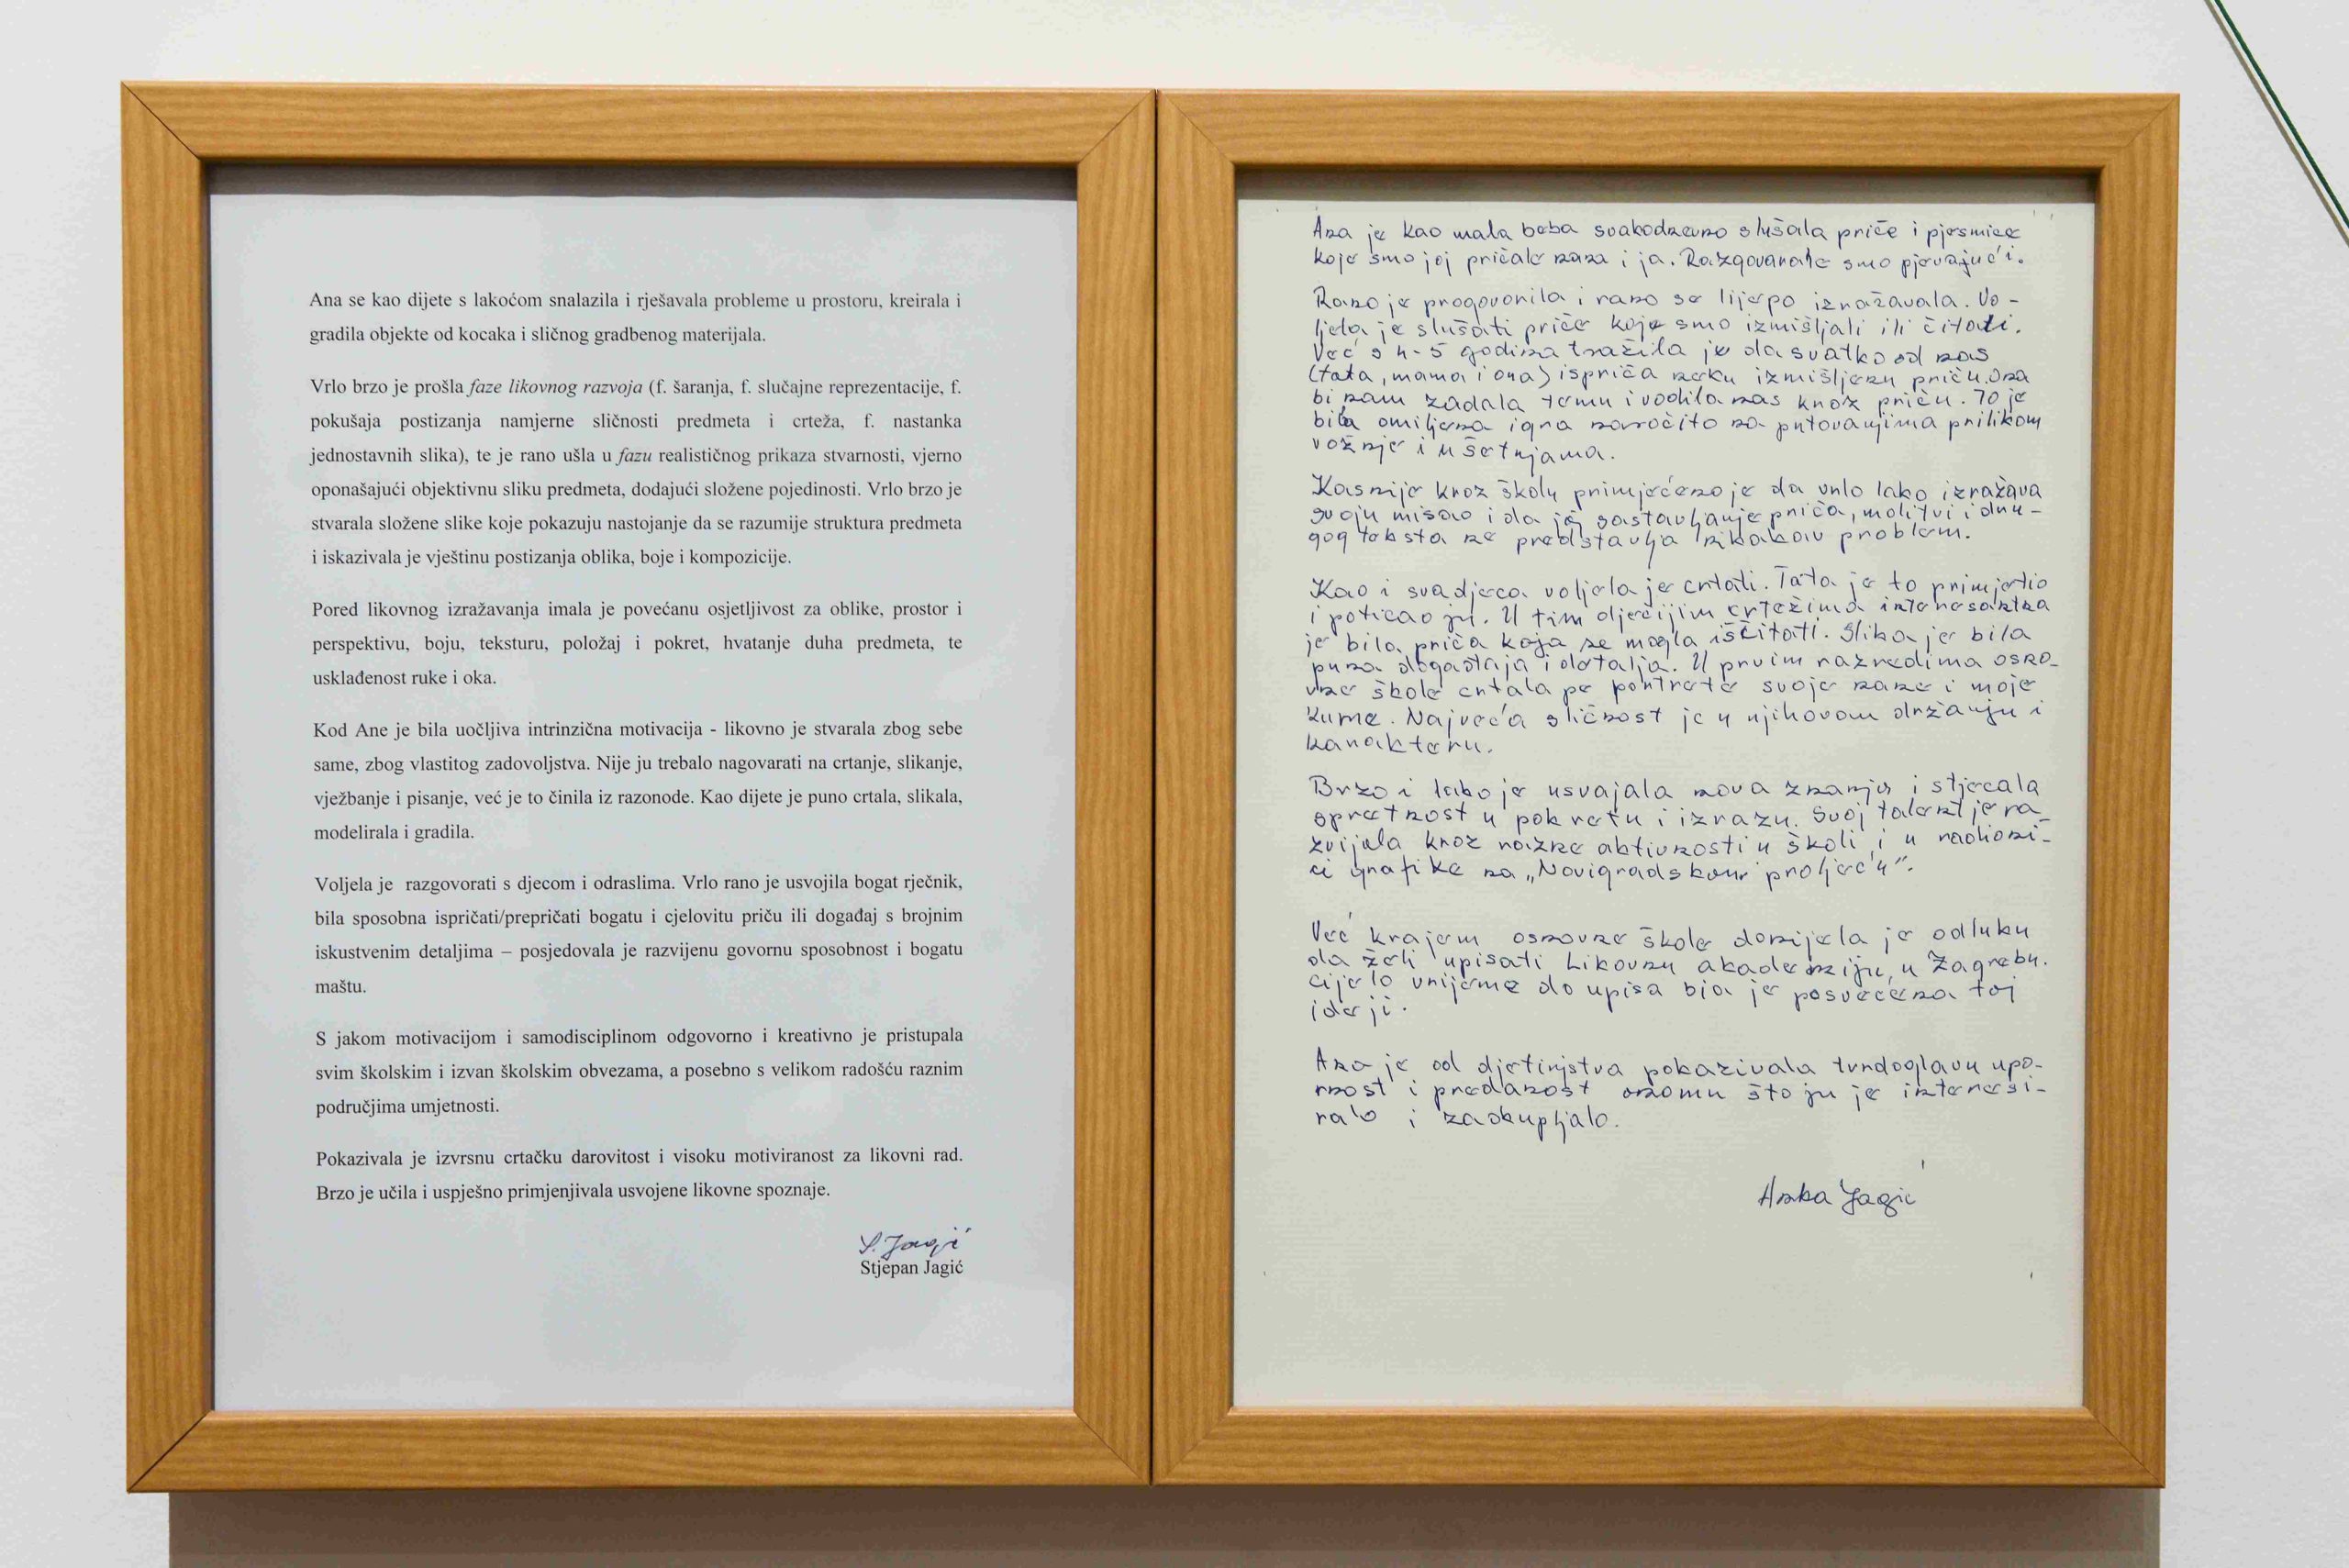 Ana se kao dijete s lakoćom snalazila i rješavala probleme u prostoru, kreirala i
gradila objekte od kocaka i sličnog gradbenog materijala.
Vrlo brzo je prošla faze likovnog razvoja (f. šaranja, f. slučajne reprezentacije, f.
pokušaja postizanja namjerne sličnosti predmeta i crteža, f. nastanka
jednostavnih slika), te je rano ušla u fazu realističnog prikaza stvarnosti, vjerno
oponašajući objektivnu sliku predmeta, dodajući složene pojedinosti. Vrlo brzo je
stvarala složene slike koje pokazuju nastojanje da se razumije struktura predmeta
i iskazivala je vještinu postizanja oblika, boje i kompozicije.
Pored likovnog izražavanja imala je povećanu osjetljivost za oblike, prostor i
perspektivu, boju, teksturu, položaj i pokret, hvatanje duha predmeta, te
usklađenost ruke i oka.
Kod Ane je bila uočljiva intrinzična motivacija - likovno je stvarala zbog sebe
same, zbog vlastitog zadovoljstva. Nije ju trebalo nagovarati na crtanje, slikanje,
vježbanje i pisanje, već je to činila iz razonode. Kao dijete je puno crtala, slikala,
modelirala i gradila.
Voljela je razgovorati s djecom i odraslima. Vrlo rano je usvojila bogat rječnik,
bila sposobna ispričati/prepričati bogatu i cjelovitu priču ili događaj s brojnim
iskustvenim detaljima – posjedovala je razvijenu govornu sposobnost i bogatu
maštu.
S jakom motivacijom i samodisciplinom odgovorno i kreativno je pristupala
svim školskim i izvan školskim obvezama, a posebno s velikom radošću raznim
područjima umjetnosti.
Pokazivala je izvrsnu crtačku darovitost i visoku motiviranost za likovni rad.
Brzo je učila i uspješno primjenjivala usvojene likovne spoznaje.
S. Jagić
Stjepan Jagić
Ana je kao mala beba svakodnevno slušala priče i pjesmice
koje smo joj pričale nana i ja. Razgovarale smo pjevajući.
Rano je progovorila i rano se lijepo izražavala. Vo-
ljela je slušati priče koje smo izmišljali ili čitali.
Već s 4-5 godina tražila je da svatko od nas
(tata, mama i ona) ispriča neku izmišljenu priču. Ona
bi nam zadala temu i vodila nas kroz priču. To je
bila omiljena igra naročito na putovanjima prilikom
vožnje i u šetnjama.
Kasnije kroz školu primjećeno je da vrlo lako izražava
svoju misao i da joj sastavljanje priča, molitvi i dru-
gog teksta ne predstavlja nikakav problem.
Kao i sva djeca voljela je crtati. Tata je to primjetio
i poticao ju. U tim dječijim crtežima interesantna
je bila priča koja se mogla iščitati. Slika je bila
puna događaja i detalja. U prvim razredima osno-
vne škole crtala je portrete svoje nane i moje
kume. Najveća sličnost je u njihovom držanju i
karakteru.
Brzo i lako je usvajala nova znanja i stjecala
spretnost u pokretu i izrazu. Svoj talent je ra-
zvijala kroz razne aktivnosti u školi i u radioni-
ci grafike na „Novigradskom proljeću".
Već krajem osnovne škole donijela je odluku
da želi upisati Likovnu akademiju u Zagrebu.
Cijelo vrijeme do upisa bia je posvećena toj
ideji.
Ana je od djetinjstva pokazivala tvrdoglavu upo-
rnost i predanost onomu što ju je interesi-
ralo i zaokupljalo.
Anka Jagić